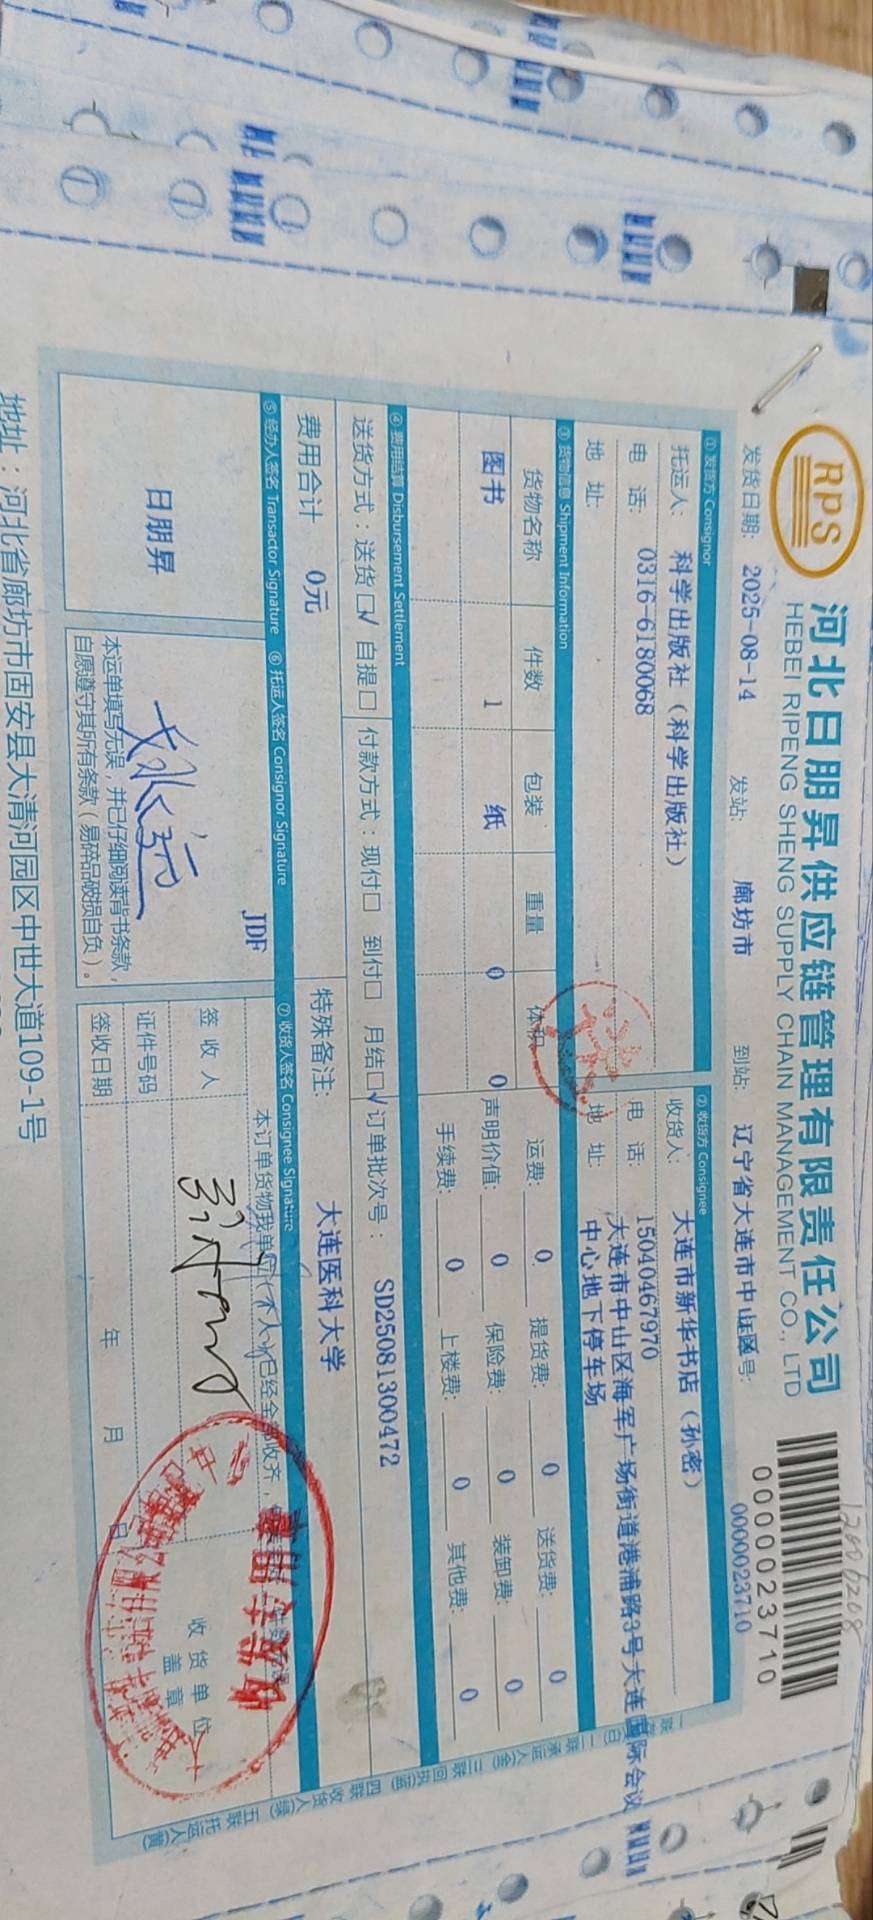 RPS
河北日朋昇供应链管理有限责任公司
HEBEI RIPENG SHENG SUPPLY CHAIN MANAGEMENT CO., LTD
0000023710
发货日期: 2025-08-14 发站: 廊坊市 到站: 辽宁省大连市中山区 号: 0000023710
① 发货方 Consignor
托运人: 科学出版社 (科学出版社)
电 话: 0316-6180068
地 址:
② 收货方 Consignee
收货人: 大连市新华书店 (孙密)
电 话: 15040467970
地 址: 大连市中山区海军广场街道港浦路3号大连国际会议
中心地下停车场
③ 货物信息 Shipment Information
货物名称 件数 包装 重量 体积
图书 1 纸 0 0
运费: 0 提货费: 0 送货费: 0
声明价值: 0 保险费: 0 装卸费: 0
手续费: 0 上楼费: 0 其他费: 0
④ 费用结算 Disbursement Settlement
送货方式:送货□√ 自提□ 付款方式:现付□ 到付□ 月结□√ 订单批次号: SD25081300472
费用合计 0元 特殊备注: 大连医科大学
⑤ 经办人签名 Transactor Signature
日朋昇
⑥ 托运人签名 Consignor Signature
JDF
本运单填写无误,并已仔细阅读背书条款,
自愿遵守其所有条款(易碎品破损自负)。
⑦ 收货人签名 Consignee Signature
本订单货物我单位(本人)已经全部收齐,
签 收 人
证件号码
签收日期 年 月 日
收 货 单 位
盖 章
收发专用章
一联 (白) 二联承运人(金) 三联回执(蓝) 四联收货人(绿) 五联托运人(黄)
地址:河北省廊坊市固安县大清河园区中世大道109-1号